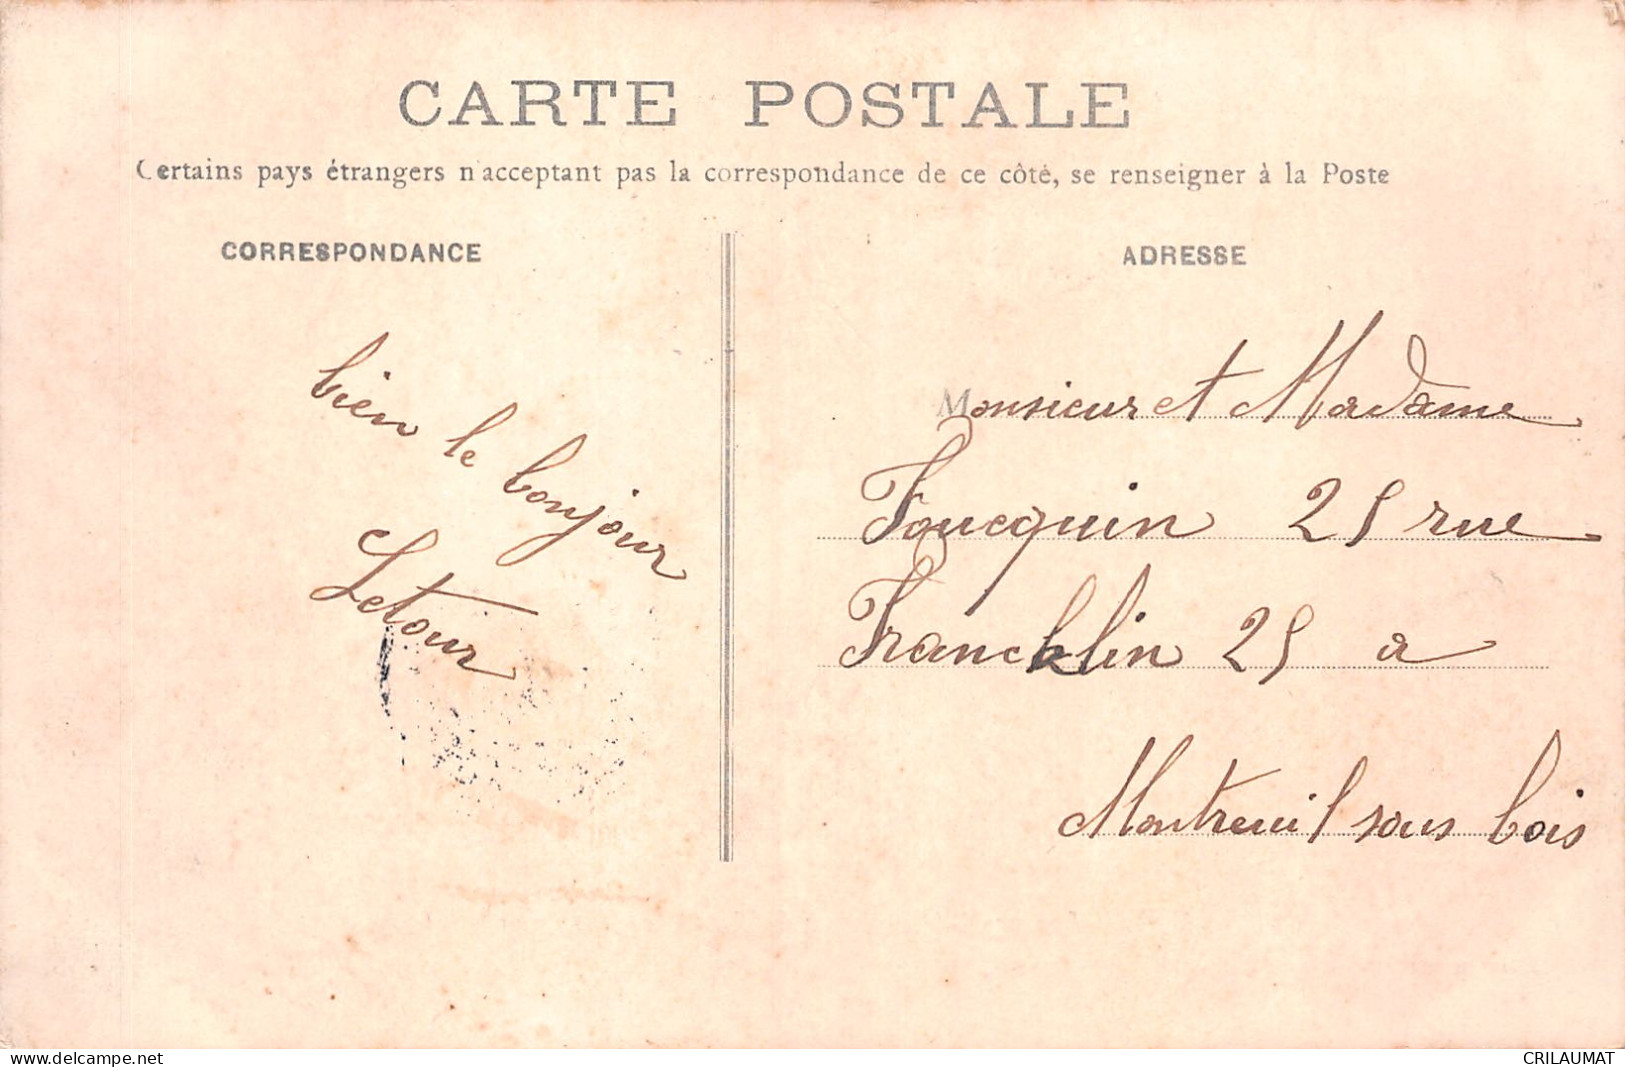 CARTE POSTALE
Certains pays étrangers n'acceptant pas la correspondance de ce côté, se renseigner à la Poste
CORRESPONDANCE
bien le bonjour
Letour
ADRESSE
Monsieur et Madame
Foucquin 25 rue
Francklin 25 a
Montreuil sous bois
www.delcampe.net
CRILAUMAT